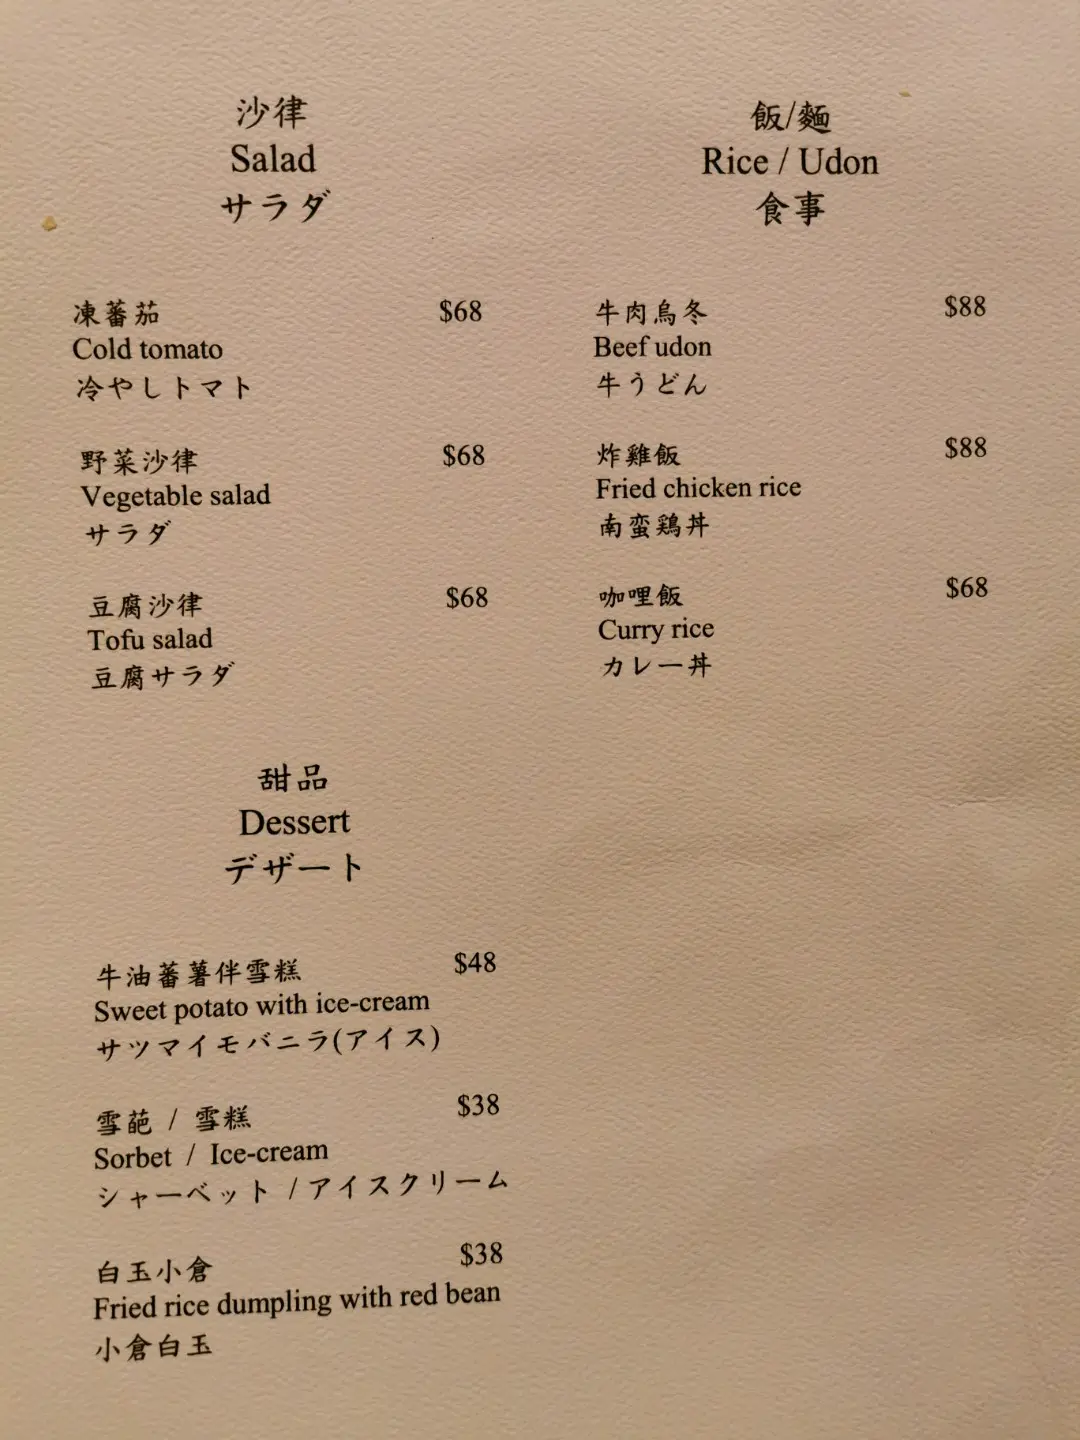 沙律
Salad
サラダ
凍蕃茄 $68
Cold tomato
冷やしトマト
野菜沙律 $68
Vegetable salad
サラダ
豆腐沙律 $68
Tofu salad
豆腐サラダ
甜品
Dessert
デザート
牛油蕃薯伴雪糕 $48
Sweet potato with ice-cream
サツマイモバニラ(アイス)
雪葩 / 雪糕 $38
Sorbet / Ice-cream
シャーベット / アイスクリーム
白玉小倉 $38
Fried rice dumpling with red bean
小倉白玉
飯/麵
Rice / Udon
食事
牛肉烏冬 $88
Beef udon
牛うどん
炸雞飯 $88
Fried chicken rice
南蛮鶏丼
咖哩飯 $68
Curry rice
カレー丼